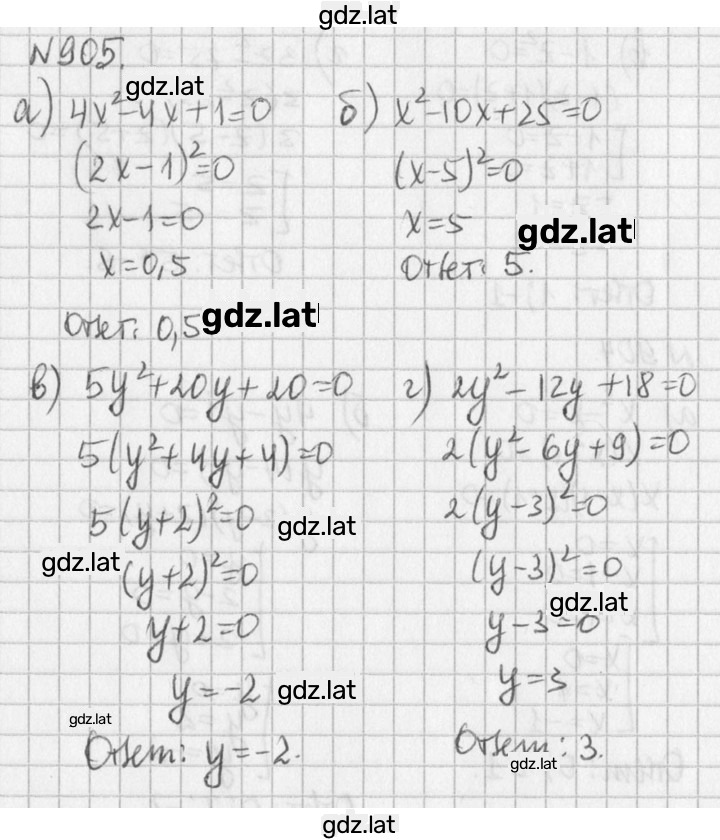 gdz.lat
№905.
gdz.lat
а) 4x²-4x+1=0
(2x-1)²=0
2x-1=0
x=0,5
Ответ: 0,5
gdz.lat
б) x²-10x+25=0
(x-5)²=0
x=5
gdz.lat
Ответ: 5.
в) 5y²+20y+20=0
5(y²+4y+4)=0
5(y+2)²=0
gdz.lat
gdz.lat
(y+2)²=0
y+2=0
y=-2
gdz.lat
gdz.lat
Ответ: y=-2.
г) 2y²-12y+18=0
2(y²-6y+9)=0
2(y-3)²=0
(y-3)²=0
gdz.lat
y-3=0
y=3
Ответ: 3.
gdz.lat
gdz.lat